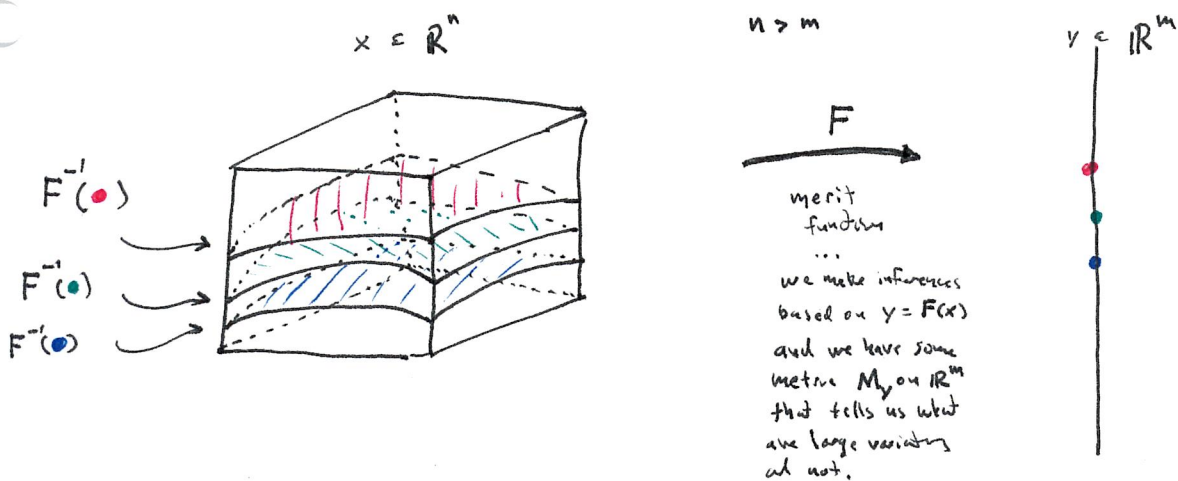 x ε ℝⁿ
n > m
y ε ℝᵐ
F
F⁻¹(●)
F⁻¹(●)
F⁻¹(●)
merit
function
...
we make inferences
based on y = F(x)
and we have some
metric M_y on ℝᵐ
that tells us what
are large variations
not.